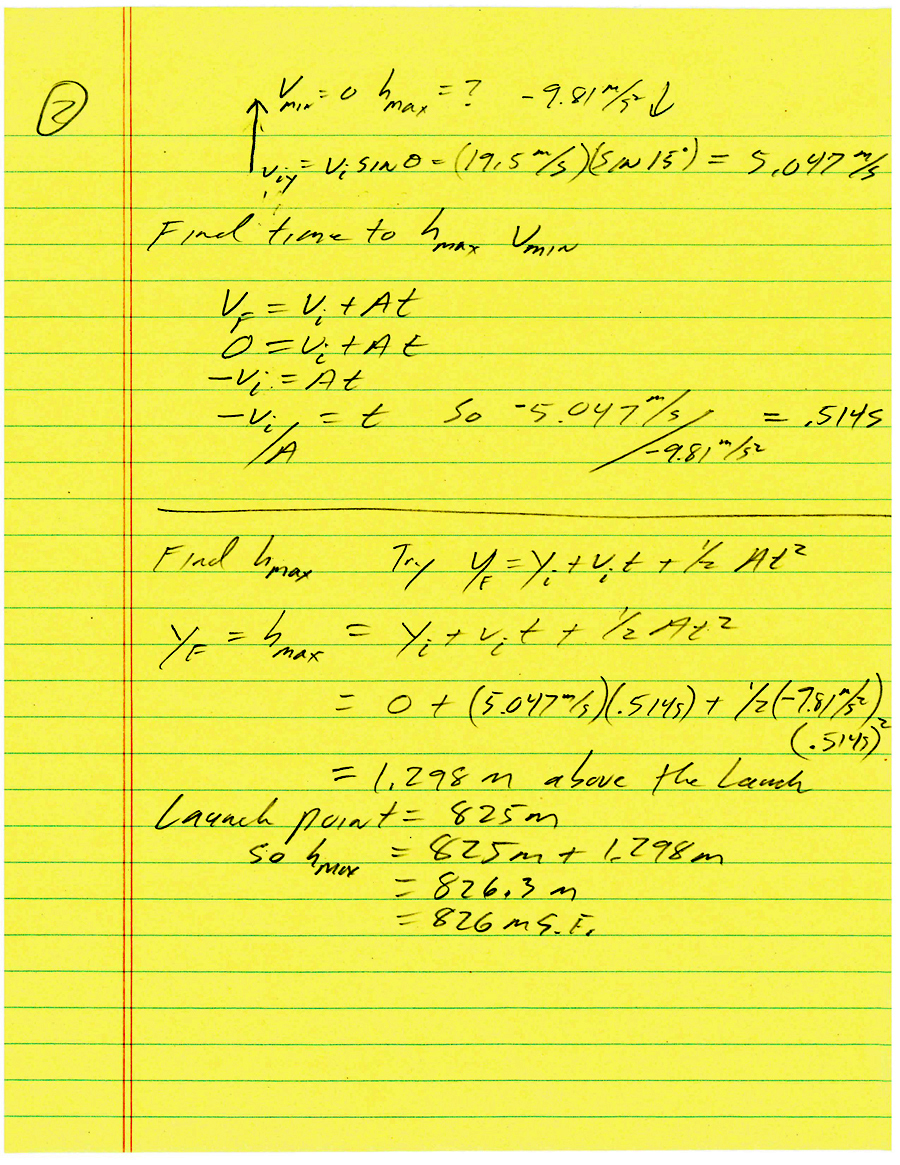 2
V_min = 0 h_max = ? -9.81 m/s² ↓
v_iy = V_i SIN θ = (19.5 m/s)(SIN 15°) = 5.047 m/s
Find time to h_max V_min
V_F = V_i + At
0 = V_i + At
-V_i = At
-V_i/A = t So -5.047 m/s / -9.81 m/s² = .514s
Find h_max Try y_F = y_i + v_i t + 1/2 At²
y_F = h_max = y_i + v_i t + 1/2 At²
= 0 + (5.047 m/s)(.514s) + 1/2(-9.81 m/s²)
(.514s)²
= 1.298 m above the Launch
Launch point = 825m
so h_max = 825m + 1.298m
= 826.3 m
= 826 m S.F.